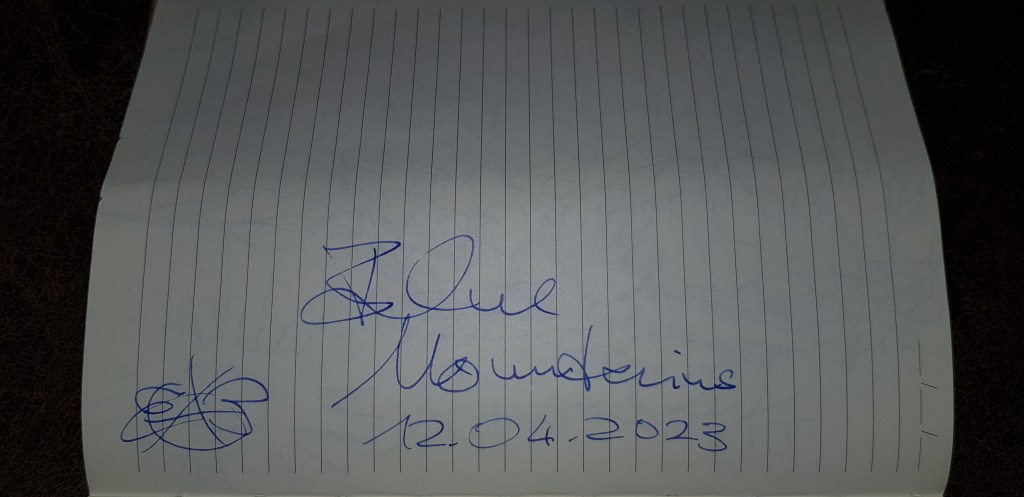 Blue
Mountains
12.04.2023